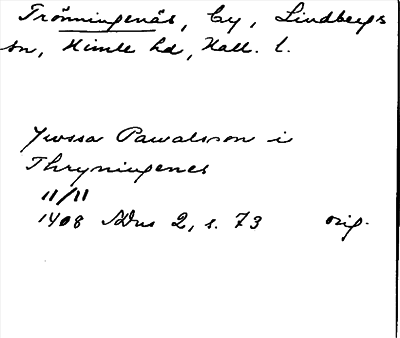 Trönningenäs, by, Lindbergs
sn, Himle hd, Hall. l.
Jwssa Pawalsson i
Thryningenes
11/11
1408 NDns 2, s. 73 orig.